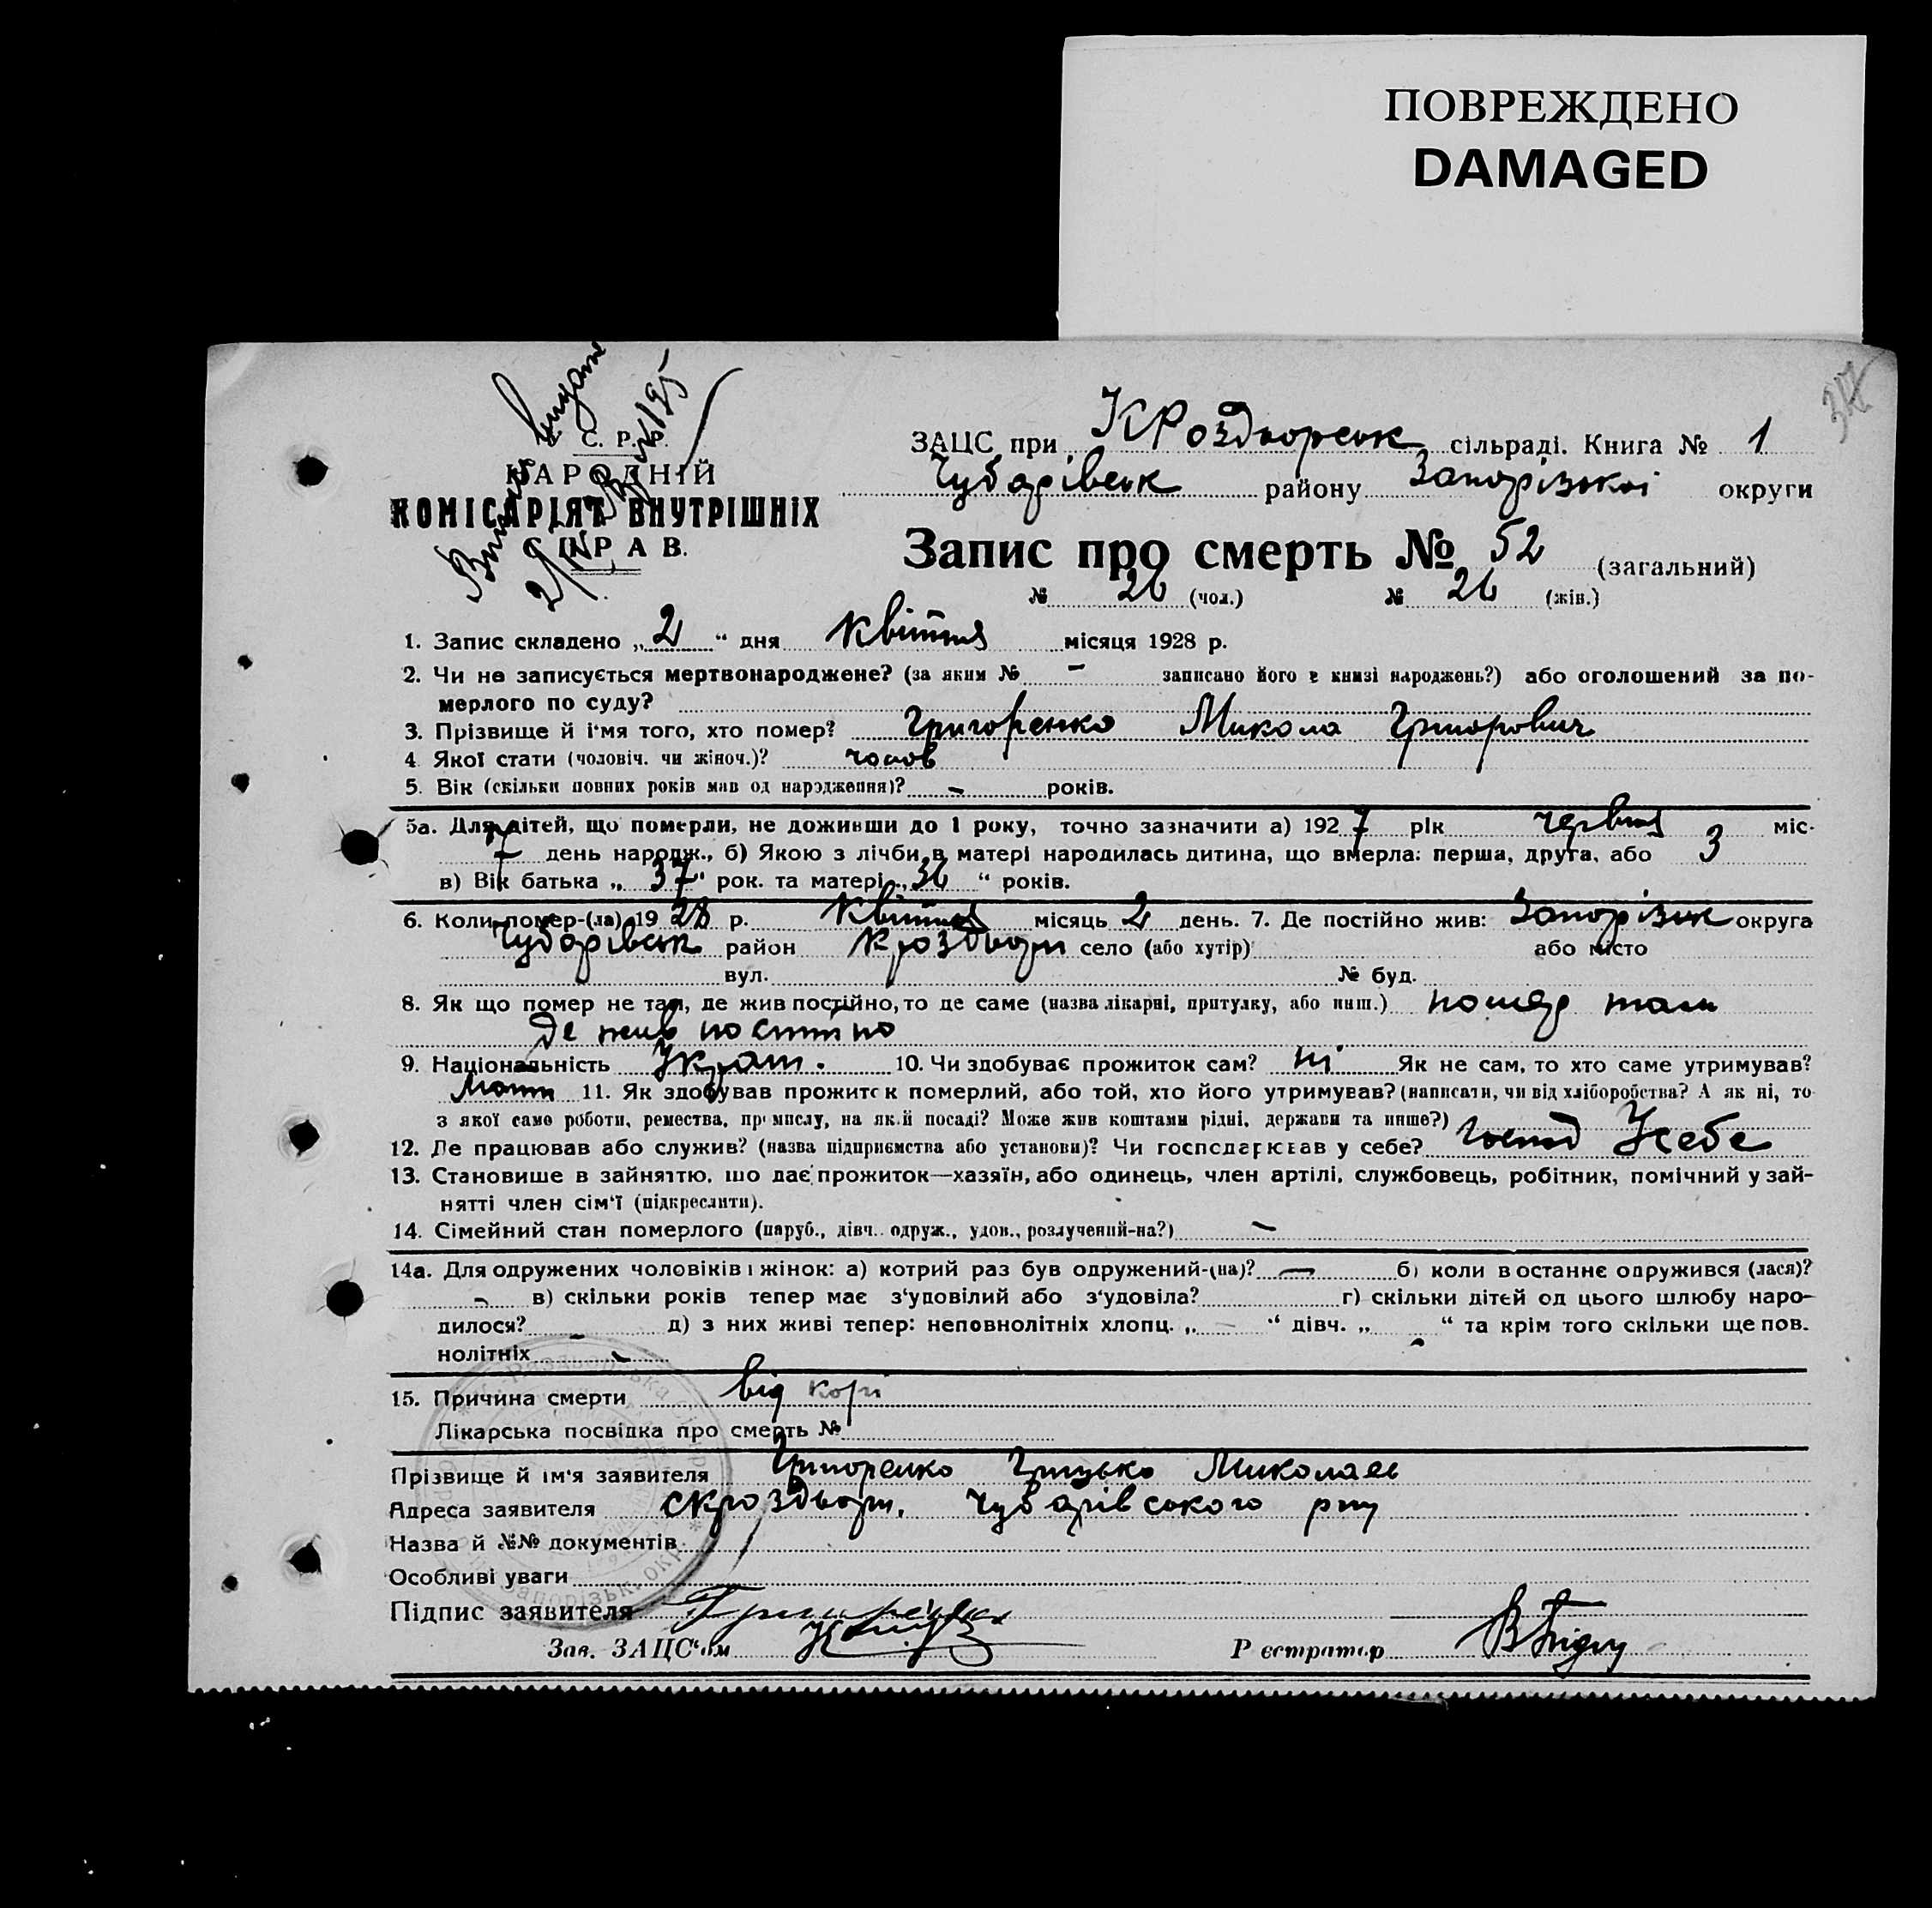 ПОВРЕЖДЕНО
DAMAGED
С. Р. Р.
НАРОДНІЙ
КОМІСАРІЯТ ВНУТРІШНІХ
СПРАВ.
ЗАЦС при КРоздворськ сільраді. Книга № 1
Чубарівськ району Запорізької округи
Запис про смерть № 52 (загальний)
№ 26 (чол.) № 26 (жін.)
1. Запис складено „2“ дня Квітня місяця 1928 р.
2. Чи не записується мертвонароджене? (за яким № - записано його в книзі народжень?) або оголошений за по-
мерлого по суду?
3. Прізвище й ім'я того, хто помер? Григоренко Микола Григорович
4. Якої стати (чоловіч. чи жіноч.)? чолов
5. Вік (скільки повних років мав од народження)? - років.
5а. Для дітей, що померли, не доживши до 1 року, точно зазначити а) 1927 рік червня міс.
7 день народж., б) Якою з лічби в матері народилась дитина, що вмерла: перша, друга, або 3
в) Вік батька „37“ рок. та матері „36“ років.
6. Коли помер-(ла) 1928 р. Квітня місяць 2 день. 7. Де постійно жив: Запорізьк округа
Чубарівськ район Кроздвори село (або хутір) або місто
вул. № буд.
8. Як що помер не там, де жив постійно, то де саме (назва лікарні, притулку, або инш.) помер там
де жив постійно
9. Національність Украін. 10. Чи здобуває прожиток сам? ні Як не сам, то хто саме утримував?
Мати 11. Як здобував прожиток померлий, або той, хто його утримував? (написати, чи від хліборобства? А як ні, то
з якої саме роботи, ремества, промислу, на якій посаді? Може жив коштами рідні, держави та инше?)
12. Де працював або служив? (назва підприємства або установи)? Чи господарював у себе? господ Усебе
13. Становише в зайняттю, що дає прожиток—хазяїн, або одинець, член артілі, службовець, робітник, помічний у зай-
нятті член сім'ї (підкреслити).
14. Сімейний стан померлого (паруб., дівч., одруж., удов., розлучений-на?) -
14а. Для одружених чоловіків і жінок: а) котрий раз був одружений-(на)? — б) коли востаннє одружився (лася)?
- в) скільки років тепер має з'удовілий або з'удовіла? г) скільки дітей од цього шлюбу наро-
дилося? - д) з них живі тепер: неповнолітніх хлопц. „-“ дівч. „-“ та крім того скільки ще пов-
нолітніх -
15. Причина смерти від корі
Лікарська посвідка про смерть №
Прізвище й ім'я заявителя Григоренко Грицько Миколаєв
Адреса заявителя с Кроздвори, Чубарівського р-ну
Назва й №№ документів
Особливі уваги
Підпис заявителя Григоренко
Зав. ЗАЦС'ом Реєстратор